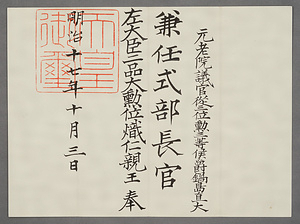 元老院議官從三位勲二等侯爵鍋島直大
兼任式部長官
左大臣二品大勲位熾仁親王奉
明治十七年十月三日
天皇御璽